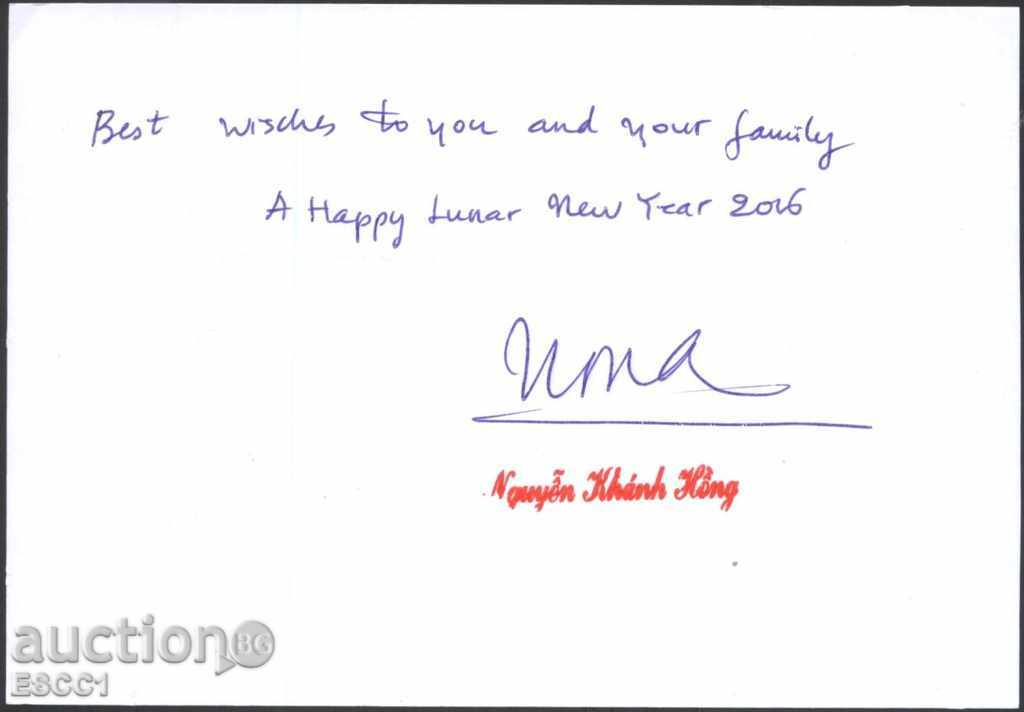 Best wisches to you and your family
A Happy Lunar New Year 2016
Nguyễn Khánh Hồng
auction BG
ESCC1